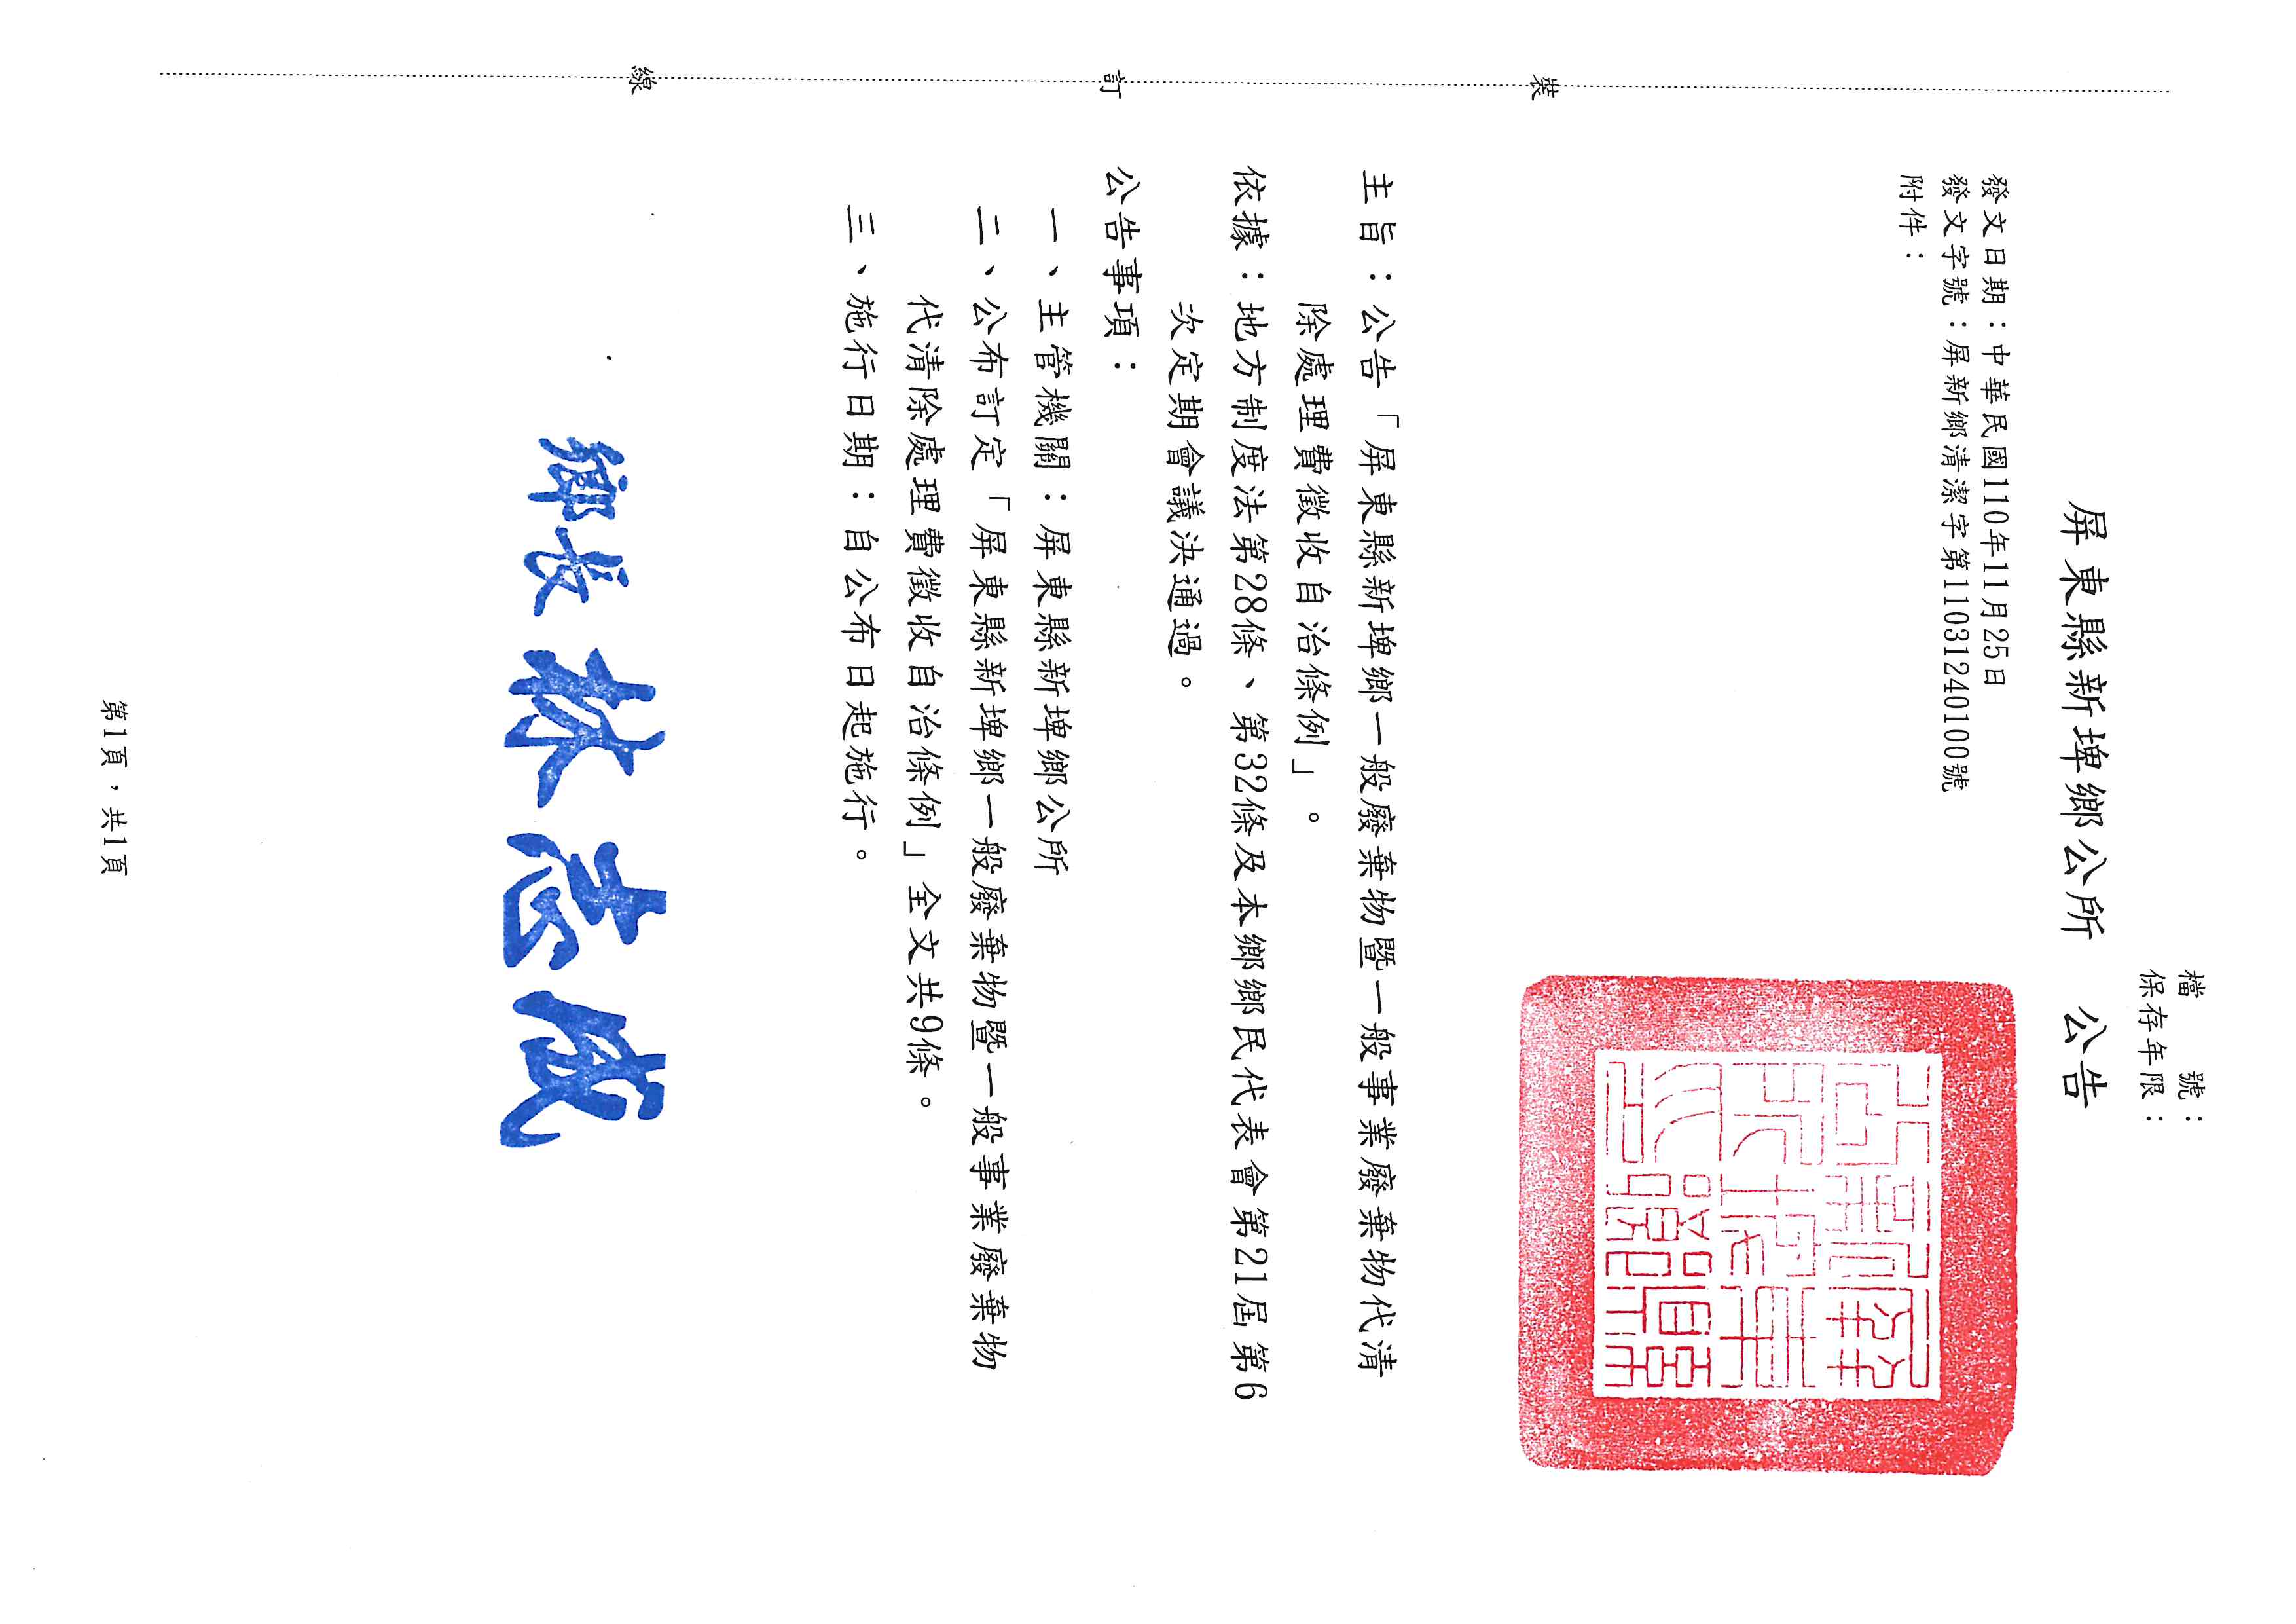 檔　　號：
保存年限：
屏東縣新埤鄉公所　公告
發文日期：中華民國110年11月25日
發文字號：屏新鄉清潔字第11031240100號
附件：
主旨：公告「屏東縣新埤鄉一般廢棄物暨一般事業廢棄物代清
除處理費徵收自治條例」。
依據：地方制度法第28條、第32條及本鄉鄉民代表會第21屆第6
次定期會議決通過。
公告事項：
一、主管機關：屏東縣新埤鄉公所
二、公布訂定「屏東縣新埤鄉一般廢棄物暨一般事業廢棄物
代清除處理費徵收自治條例」全文共9條。
三、施行日期：自公布日起施行。
鄉長 林志威
第1頁，共1頁
裝
訂
線